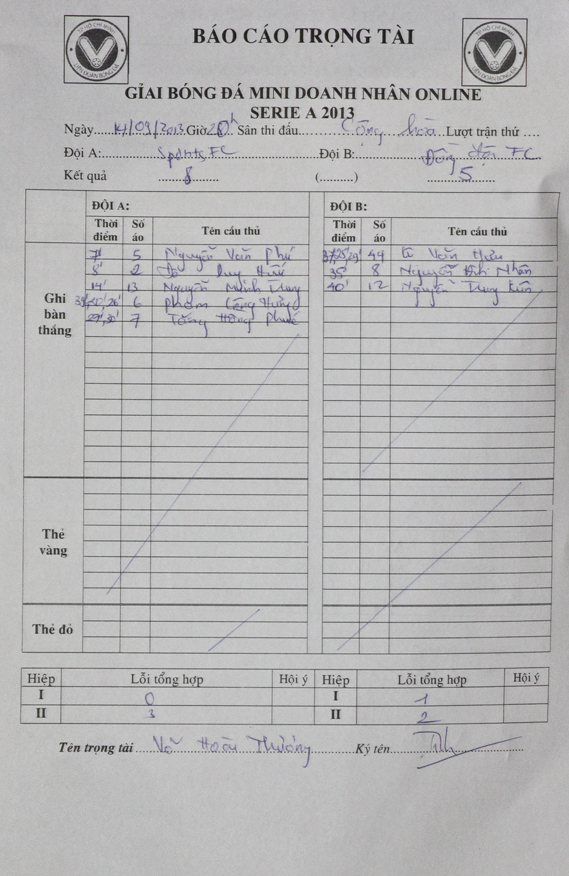 BÁO CÁO TRỌNG TÀI
GIẢI BÓNG ĐÁ MINI DOANH NHÂN ONLINE
SERIE A 2013
Ngày 14/09/2013 Giờ 20h Sân thi đấu Cộng hòa Lượt trận thứ ....
Đội A: Sports FC Đội B: Đồng đội FC
Kết quả 8 (..........) 5
ĐỘI A: ĐỘI B:
Thời điểm Số áo Tên cầu thủ Thời điểm Số áo Tên cầu thủ
Ghi bàn thắng
7' 5 Nguyễn Văn Phú 44 Văn Hữu
5' 2 Duy Hiếu 35' 8 Nguyễn Đình Nhân
14' 13 Nguyễn Minh Trung 40' 12 Nguyễn Trung
6 Phạm Công Hưng
7 Tăng Hồng Phước
Thẻ vàng
Thẻ đỏ
Hiệp Lỗi tổng hợp Hội ý Hiệp Lỗi tổng hợp Hội ý
I 0 I 1
II 3 II 2
Tên trọng tài Võ Hoài Thương Ký tên